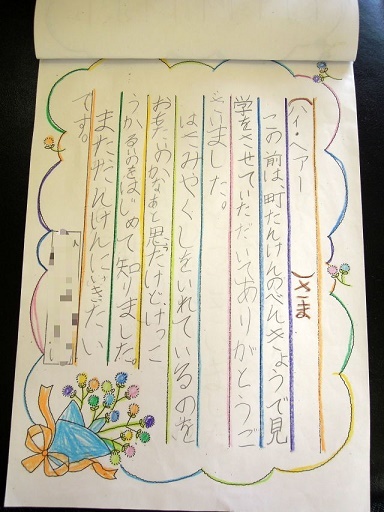 (ハイ・ヘアー )さま
この前は、町たんけんのべんきょうで見
学をさせていただいてありがとうご
ざいました。
はさみやくしをいれているのを
おもたいのかなあと思たけど、けっこ
うかるいのをはじめて知りました。
またたんけんにいきたい
です。